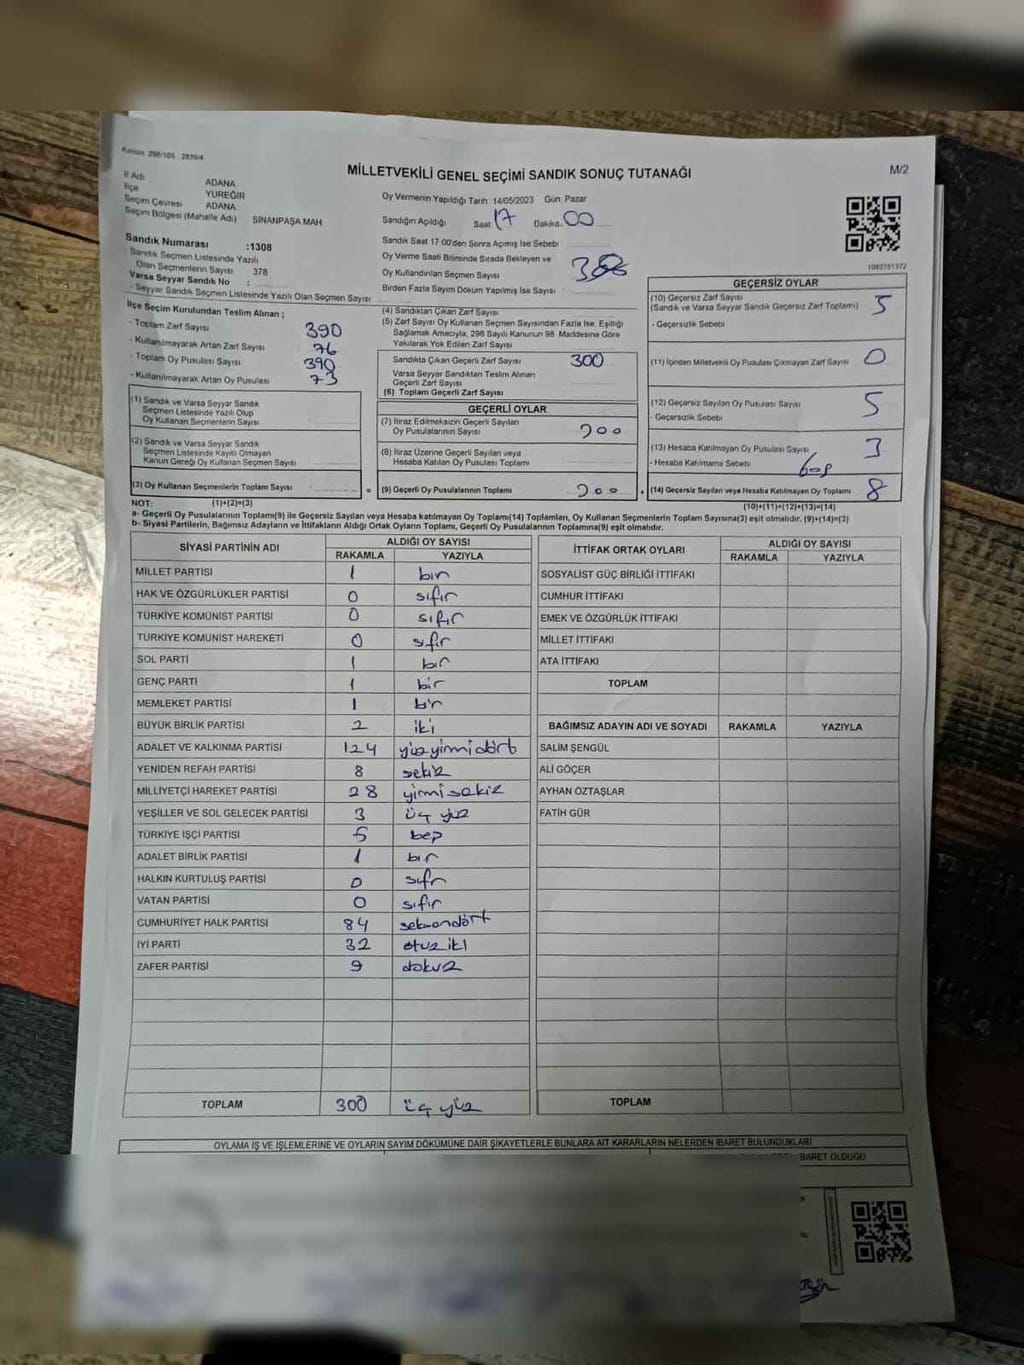 Kanun 298/105 2839/4
MİLLETVEKİLİ GENEL SEÇİMİ SANDIK SONUÇ TUTANAĞI
M/2
İl Adı ADANA
İlçe YÜREĞİR
Seçim Çevresi ADANA
Seçim Bölgesi (Mahalle Adı) SİNANPAŞA MAH
Sandık Numarası :1308
Sandık Seçmen Listesinde Yazılı
Olan Seçmenlerin Sayısı 378
Varsa Seyyar Sandık No :
- Seyyar Sandık Seçmen Listesinde Yazılı Olan Seçmen Sayısı
İlçe Seçim Kurulundan Teslim Alınan ;
- Toplam Zarf Sayısı 390
- Kullanılmayarak Artan Zarf Sayısı 76
- Toplam Oy Pusulası Sayısı 390
- Kullanılmayarak Artan Oy Pusulası 73
(1) Sandık ve Varsa Seyyar Sandık
Seçmen Listesinde Yazılı Olup
Oy Kullanan Seçmenlerin Sayısı
(2) Sandık ve Varsa Seyyar Sandık
Seçmen Listesinde Kayıtlı Olmayan
Kanun Gereği Oy Kullanan Seçmen Sayısı
(3) Oy Kullanan Seçmenlerin Toplam Sayısı
Oy Vermenin Yapıldığı Tarih :14/05/2023 Gün Pazar
Sandığın Açıldığı Saat 17 Dakika 00
Sandık Saat 17.00'den Sonra Açılmış İse Sebebi
Oy Verme Saati Bitiminde Sırada Bekleyen ve
Oy Kullandırılan Seçmen Sayısı
Birden Fazla Sayım Döküm Yapılmış İse Sayısı
(4) Sandıktan Çıkan Zarf Sayısı
(5) Zarf Sayısı Oy Kullanan Seçmen Sayısından Fazla İse, Eşitliği
Sağlamak Amacıyla, 298 Sayılı Kanunun 98. Maddesine Göre
Yakılarak Yok Edilen Zarf Sayısı
Sandıkta Çıkan Geçerli Zarf Sayısı 300
Varsa Seyyar Sandıktan Teslim Alınan
Geçerli Zarf Sayısı
(6) Toplam Geçerli Zarf Sayısı
GEÇERLİ OYLAR
(7) İtiraz Edilmeksizin Geçerli Sayılan
Oy Pusulalarının Sayısı 300
(8) İtiraz Üzerine Geçerli Sayılan veya
Hesaba Katılan Oy Pusulası Toplamı
= (9) Geçerli Oy Pusulalarının Toplamı 300
1063751372
GEÇERSİZ OYLAR
(10) Geçersiz Zarf Sayısı 5
(Sandık ve Varsa Seyyar Sandık Geçersiz Zarf Toplamı)
- Geçersizlik Sebebi
(11) İçinden Milletvekili Oy Pusulası Çıkmayan Zarf Sayısı 0
(12) Geçersiz Sayılan Oy Pusulası Sayısı 5
- Geçersizlik Sebebi
(13) Hesaba Katılmayan Oy Pusulası Sayısı 3
- Hesaba Katılmama Sebebi boş
+ (14) Geçersiz Sayılan veya Hesaba Katılmayan Oy Toplamı 8
NOT: (1)+(2)=(3)
(10)+(11)+(12)+(13)=(14)
a- Geçerli Oy Pusulalarının Toplamı(9) ile Geçersiz Sayılan veya Hesaba Katılmayan Oy Toplamı(14) Toplamları, Oy Kullanan Seçmenlerin Toplam Sayısına(3) eşit olmalıdır. (9)+(14)=(3)
b- Siyasi Partilerin, Bağımsız Adayların ve İttifakların Aldığı Ortak Oyların Toplamı, Geçerli Oy Pusulalarının Toplamına(9) eşit olmalıdır.
SİYASİ PARTİNİN ADI ALDIĞI OY SAYISI
RAKAMLA YAZIYLA
MİLLET PARTİSİ 1 bir
HAK VE ÖZGÜRLÜKLER PARTİSİ 0 sıfır
TÜRKİYE KOMÜNİST PARTİSİ 0 sıfır
TÜRKİYE KOMÜNİST HAREKETİ 0 sıfır
SOL PARTİ 1 bir
GENÇ PARTİ 1 bir
MEMLEKET PARTİSİ 1 bir
BÜYÜK BİRLİK PARTİSİ 2 iki
ADALET VE KALKINMA PARTİSİ 124 yüzyirmidört
YENİDEN REFAH PARTİSİ 8 sekiz
MİLLİYETÇİ HAREKET PARTİSİ 28 yirmisekiz
YEŞİLLER VE SOL GELECEK PARTİSİ 3 üç yüz
TÜRKİYE İŞÇİ PARTİSİ 5 beş
ADALET BİRLİK PARTİSİ 1 bir
HALKIN KURTULUŞ PARTİSİ 0 sıfır
VATAN PARTİSİ 0 sıfır
CUMHURİYET HALK PARTİSİ 84 seksendört
İYİ PARTİ 32 otuziki
ZAFER PARTİSİ 9 dokuz
TOPLAM 300 üç yüz
İTTİFAK ORTAK OYLARI ALDIĞI OY SAYISI
RAKAMLA YAZIYLA
SOSYALİST GÜÇ BİRLİĞİ İTTİFAKI
CUMHUR İTTİFAKI
EMEK VE ÖZGÜRLÜK İTTİFAKI
MİLLET İTTİFAKI
ATA İTTİFAKI
TOPLAM
BAĞIMSIZ ADAYIN ADI VE SOYADI RAKAMLA YAZIYLA
SALİM ŞENGÜL
ALİ GÖÇER
AYHAN ÖZTAŞLAR
FATİH GÜR
TOPLAM
OYLAMA İŞ VE İŞLEMLERİNE VE OYLARIN SAYIM DÖKÜMÜNE DAİR ŞİKAYETLERLE BUNLARA AİT KARARLARIN NELERDEN İBARET BULUNDUKLARI
İBARET OLDUĞU